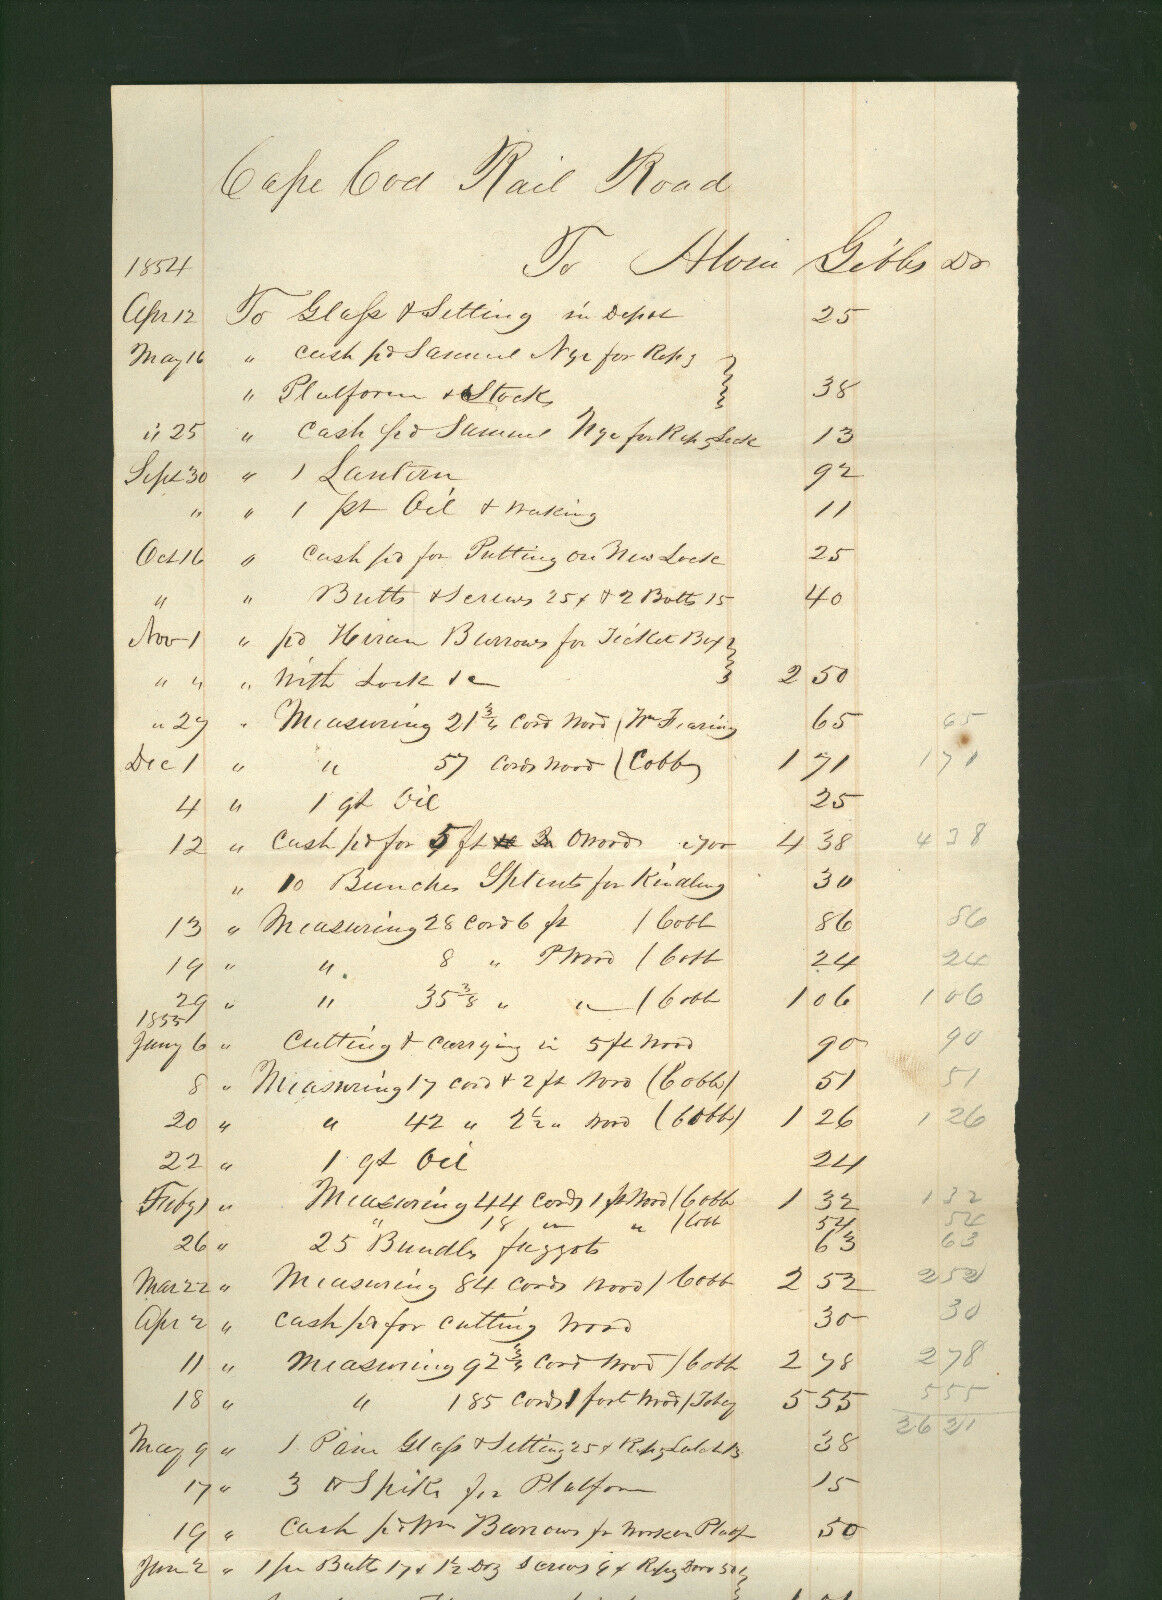 Cape Cod Rail Road
To Alvin Gibbs Dr
1854
Apr 12 To Glass & Setting in Depot 25
May 16 " Cash pd Samuel Nye for Repg
" Platform & Stocks 38
" 25 " Cash pd Samuel Nye for Repg Lock 13
Sept 30 " 1 Lantern 92
" " 1 pt Oil & 11
Oct 16 " Cash pd for Putting on New Lock 25
" " Butts & Screws 25 & 2 Bolts 15 40
Nov 1 " pd Hiram Burrows for Ticket Box
" " " With Lock &c 2 50
" 27 " Measuring 21 3/4 Cord Wood / Wm Fearing 65 65
Dec 1 " " 57 Cords Wood / Cobb 1 71 1 71
4 " 1 qt Oil 25
12 " Cash pd for 5 ft 4 38 4 38
" 10 Bunches Splints for Kindling 30
13 " Measuring 28 Cord 6 ft / Cobb 86 86
19 " " 8 " P Wood / Cobb 24 24
29 " " 35 3/8 " " / Cobb 1 06 1 06
1855
Jany 6 " Cutting & Carrying in 5 ft Wood 90 90
8 " Measuring 17 Cord & 2 ft Wood (Cobb) 51 51
20 " " 42 " 2 1/2 " Wood (Cobb) 1 26 1 26
22 " 1 qt Oil 24
Feby 1 " Measuring 44 Cords 1 ft Wood / Cobb 1 32 1 32
" 18 " " / Cobb 54 54
26 " 25 Bundles faggots 63 63
Mar 22 " Measuring 84 Cords Wood / Cobb 2 52 2 52
Apr 2 " Cash pd for Cutting Wood 30 30
11 " Measuring 92 3/4 Cord Wood / Cobb 2 78 2 78
18 " " 185 Cords 1 foot Wood / Tobey 5 55 5 55
26 21
May 9 " 1 Pain Glass & Setting 25 & Repg Latch 13 38
17 " 3 lb Spike for Platform 15
19 " Cash pd Wm Burrows for Work on Platf 50
June 2 " 1 pr Butts 17 & 1 1/2 Doz Screws 9 & Repg Door 50